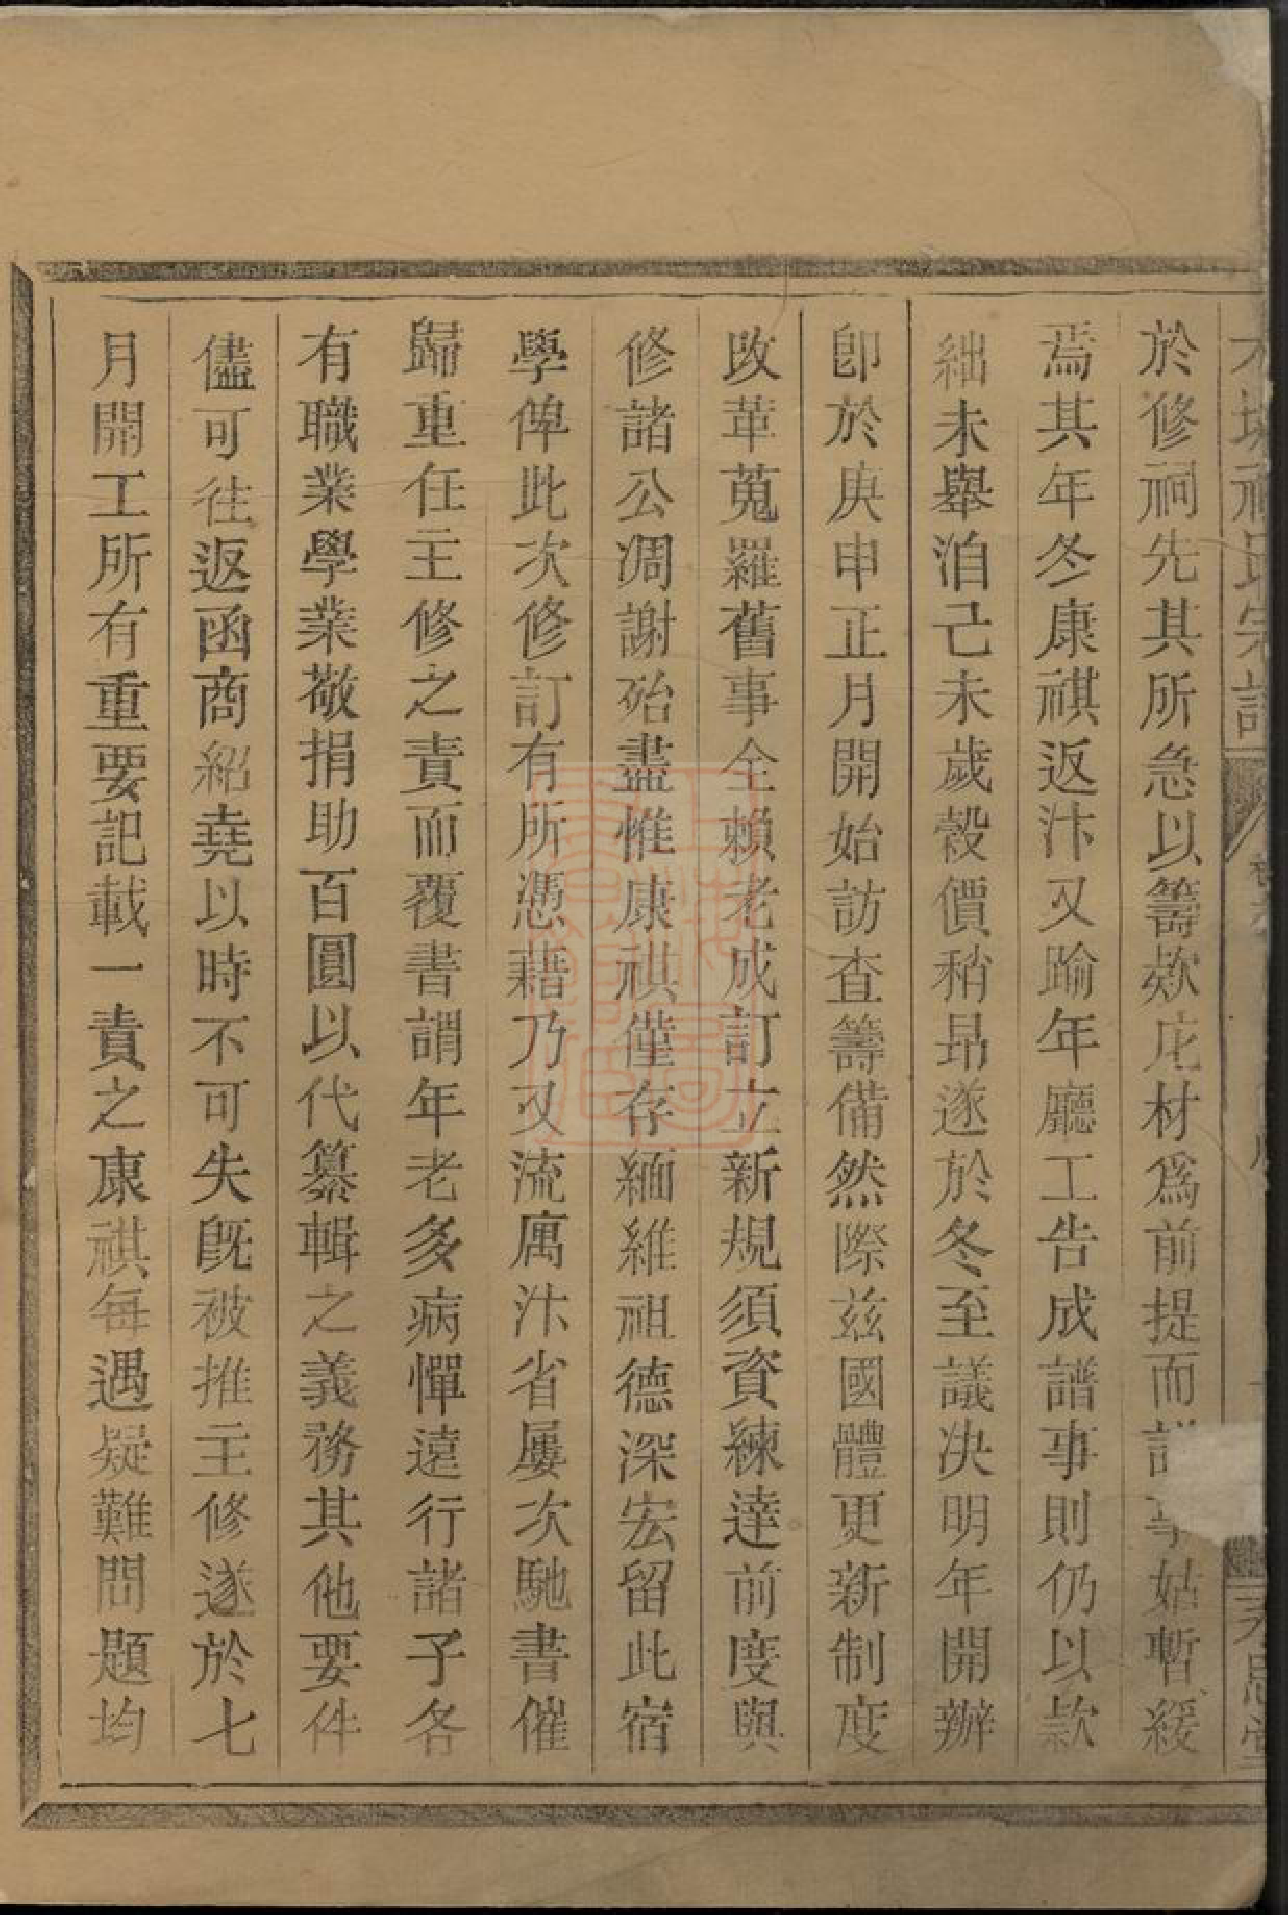 於修祠先其所急以籌欵庀材爲前提而譜事姑暫緩
焉其年冬康祺返汴又踰年廳工告成譜事則仍以款
絀未舉洎己未歲穀價稍昻遂於冬至議决明年開辦
卽於庚申正月開始訪查籌備然際茲國體更新制度
改革蒐羅舊事全賴老成訂立新規須資練達前度與
修諸公凋謝殆盡惟康祺僅存緬維祖德深宏留此宿
學俾此次修訂有所憑藉乃又流寓汴省屢次馳書催
歸重任主修之責而覆書謂年老多病憚遠行諸予各
有職業學業敬捐助百圓以代纂輯之義務其他要件
儘可往返函商紹堯以時不可失旣被推主修遂於七
月開工所有重要記載一責之康祺每遇疑難問題均